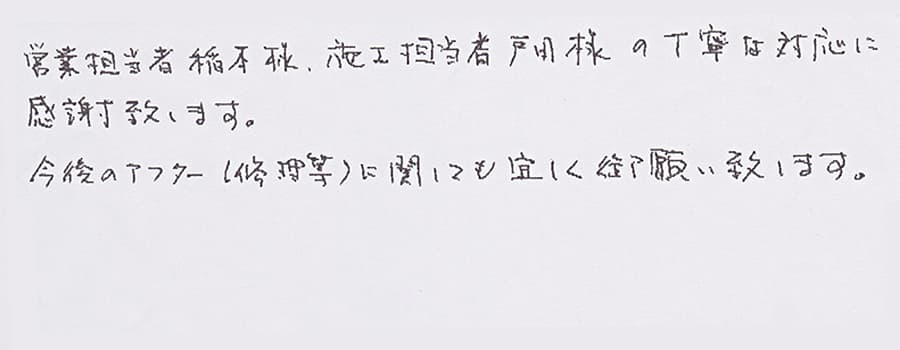 営業担当者稲本様、施工担当者戸田様の丁寧な対応に
感謝致します。
今後のアフター(修理等)に関しても宜しく御願い致します。